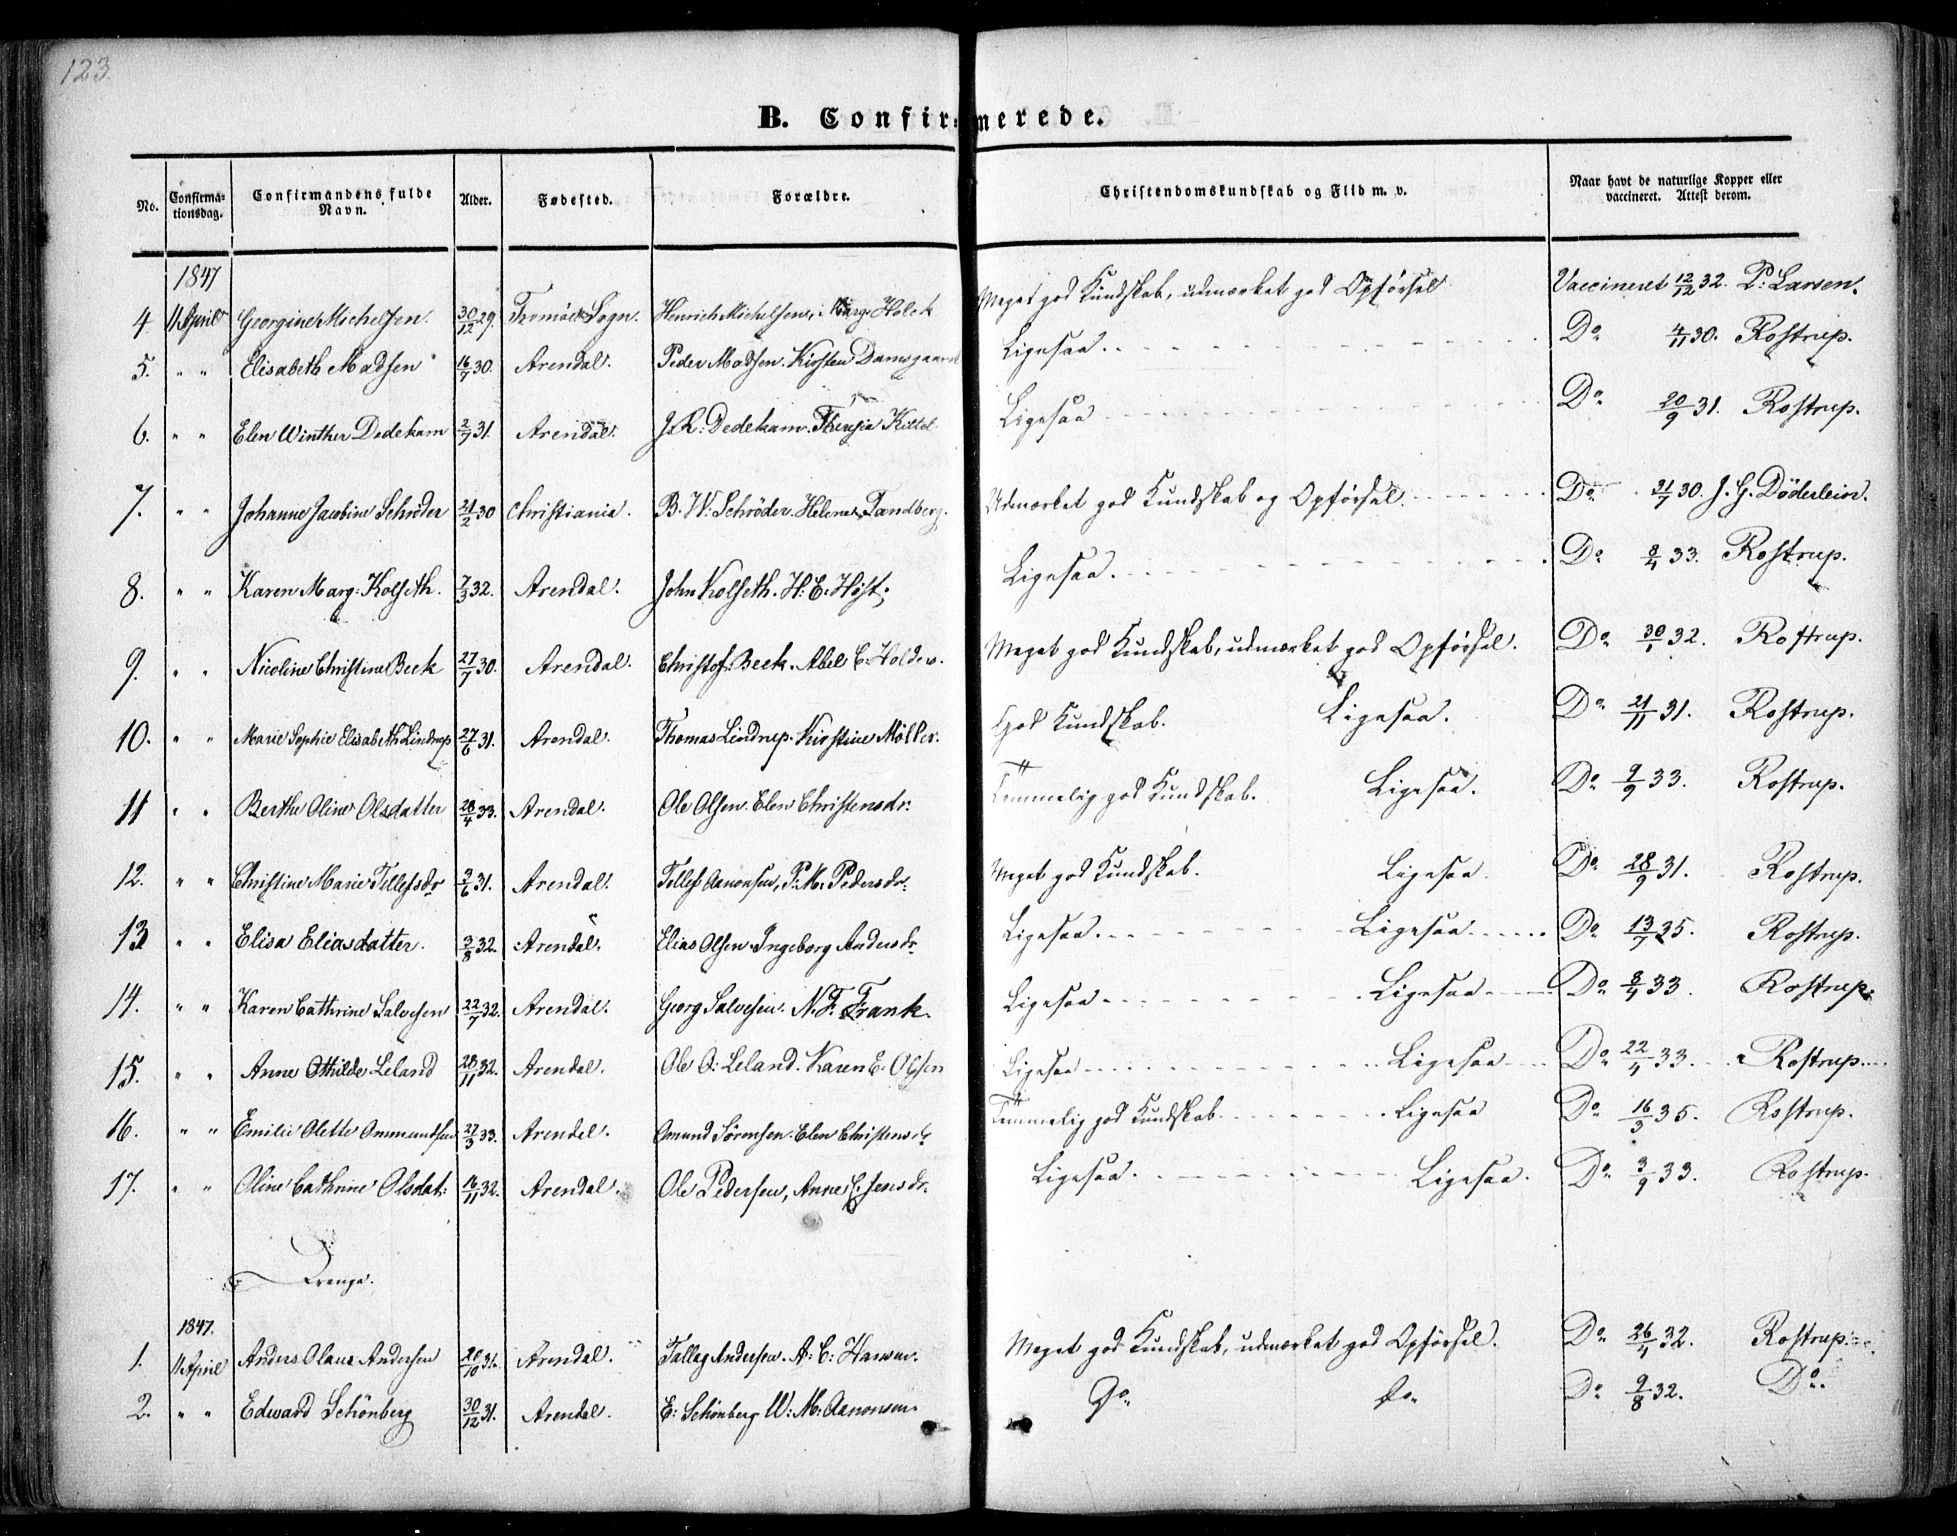 123.
B. Confirmerede.
No. Confirmationsdag. Confirmandens fulde Navn. Alder. Fødested. Forældre. Christendomskundskab og Flid m. v. Naar havt de naturlige Kopper eller vaccineret. Attest derom.
1847
4 11 April Georgine Michelsen. 30/12 29. Tromöe Sogn. Henrich Michelsen, Marg. Holck Meget god Kundskab, udmærket god Opførsel Vaccineret 12/12 32. P: Larsen.
5. " " Elisabeth Madsen 16/7 30. Arendal. Peder Madsen. Kirsten Damsgaard Ligesaa. Do 4/11 30. Rostrup.
6. " " Elen Winther Dedekam 2/7 31. Arendal. J. R: Dedekam. Kittel Ligesaa Do 20/9 31. Rostrup.
7. " " Johanne Jacobine Schrøder 21/2 30 Christiania. B. W: Schröder. Helene Tandberg. Udmærket god Kundskab og Opførsel. Do 21/7 30. J. G. Döderlein.
8. " " Karen Marg: Kolseth. 7/3 32. Arendal. John Kolseth. H: E: Høst. Ligesaa. Do 8/4 33. Rostrup.
9. " " Nicoline Christine Beck 27/7 30. Arendal. Christof: Beck. Abel C: Holder. Meget god Kundskab, udmærket god Opførsel. Do 30/1 32. Rostrup.
10. " " Marie Sophie Elisabeth Lindrup 27/6 31. Arendal. Thomas Lindrup. Kirstine Möller. God Kundskab. Ligesaa. Do 21/11 31. Rostrup.
11 " " Berthe Oline Olsdatter 28/4 33. Arendal. Ole Olsen. Elen Christensdr: Temmelig god Kundskab. Ligesaa. Do 9/9 33. Rostrup.
12. " " Christine Marie Tellefsdr 2/6 31. Arendal. Tellef Aanonsen, P: M: Pedersdr. Meget god Kundskab. Ligesaa. Do 28/9 31. Rostrup.
13 " " Elisa Eliasdatter. 3/8 32. Arendal. Elias Olsen. Ingeborg Andersdr. Ligesaa. Ligesaa. Do 13/7 35. Rostrup.
14. " " Karen Cathrine Salvesen 22/7 32. Arendal. Georg Salvesen. N. F. Frank. Ligesaa Ligesaa Do 8/4 33. Rostrup.
15. " " Anne Othilde Leland 28/11 32. Arendal. Ole O: Leland. Karen E. Olsen Ligesaa Ligesaa Do 22/4 33. Rostrup.
16. " " Emilie Olette Ommundsen 27/3 33. Arendal. Omund Sörensen. Elen Christensdr Temmelig god Kundskab Ligesaa Do 16/3 35. Rostrup.
17. " " Oline Cathrine Olsdat: 16/11 32. Arendal. Ole Pedersen, Anne Jensdr. Ligesaa. Ligesaa. Do 3/9 33. Rostrup.
Drenge.
1847.
1. 11 April Anders Olaus Andersen 20/10 31. Arendal. Tallag Andersen. A: C: Hansen. Meget god Kundskab, udmærket god Opförsel. Do 26/4 32. Rostrup.
2. " " Edward Schönberg 30/12 31. Arendal. E: Schönberg W: M: Aanonsen. Do Do Do 9/8 32. Do.